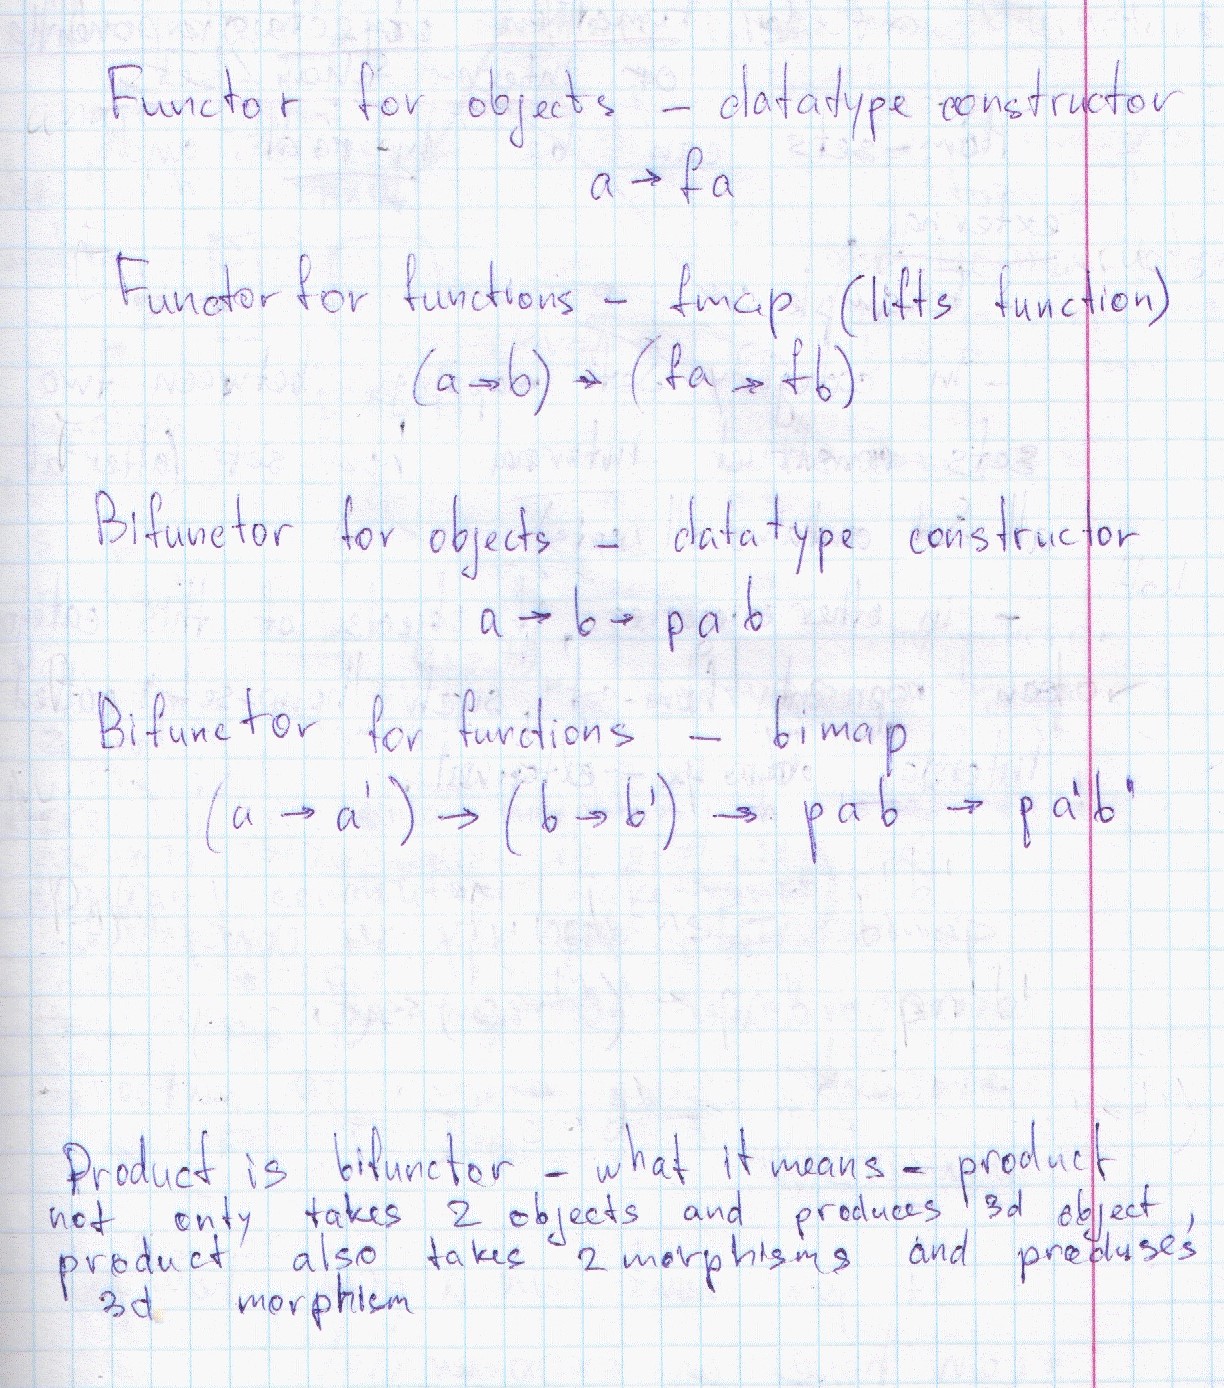 Functor for objects - datatype constructor
a → fa
Functor for functions - fmap (lifts function)
(a → b) → (fa → fb)
Bifunctor for objects - datatype constructor
a → b → p a b
Bifunctor for functions - bimap
(a → a') → (b → b') → p a b → p a' b'
Product is bifunctor - what it means - product
not only takes 2 objects and produces 3d object,
product also takes 2 morphisms and produses
3d morphism